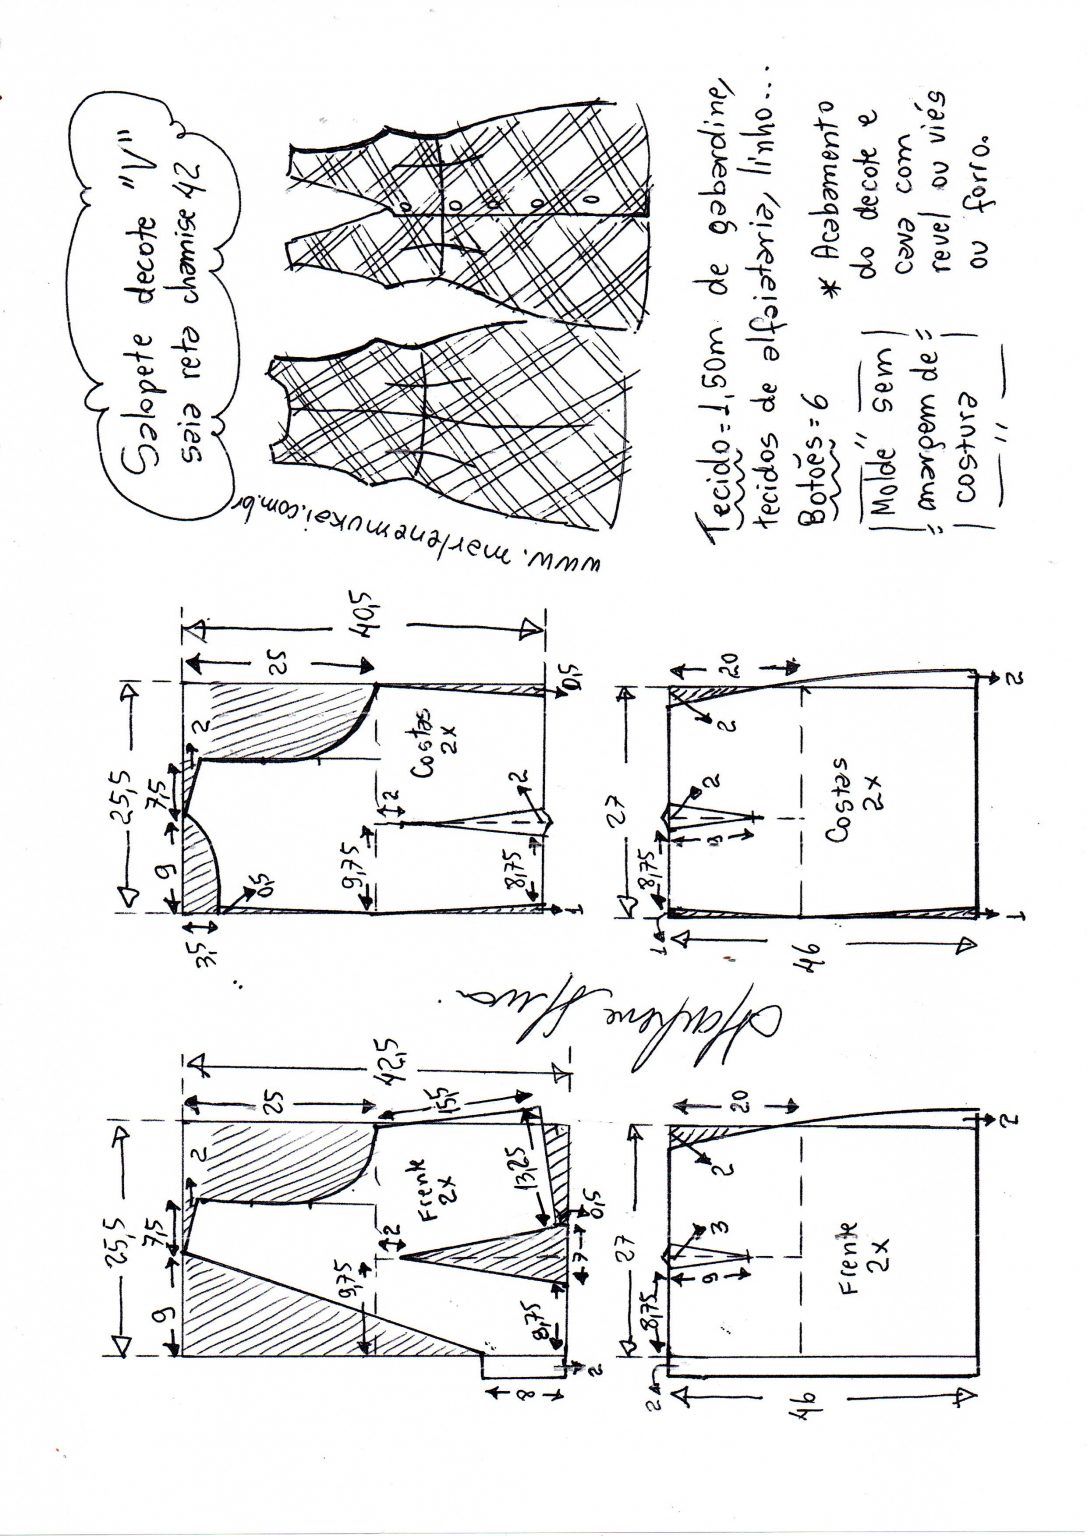 Salopete decote "V"
saia reta chamise 42
www.marlenemukai.com.br
Tecido=1,50m de gabardine,
tecidos de alfaiataria, linho...
Botões=6
Molde sem
margem de
costura
* Acabamento
do decote e
cava com
revel ou viés
ou forro.
25,5
9
7,5
2
42,5
25
15,5
Frente
2x
9,75
2
13,25
8,75
7
0,5
8
2
25,5
9
7,5
2
40,5
25
3,5
0,5
Costas
2x
9,75
2
8,75
2
1
0,5
27
8,75
9
3
2
2
20
Frente
2x
46
2
27
8,75
9
2
1
2
20
Costas
2x
46
1
2
Marlene Mukai